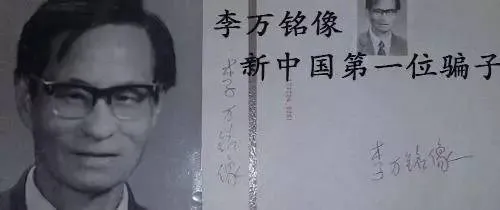 李万铭像
新中国第一位骗子
李万铭像
李万铭像